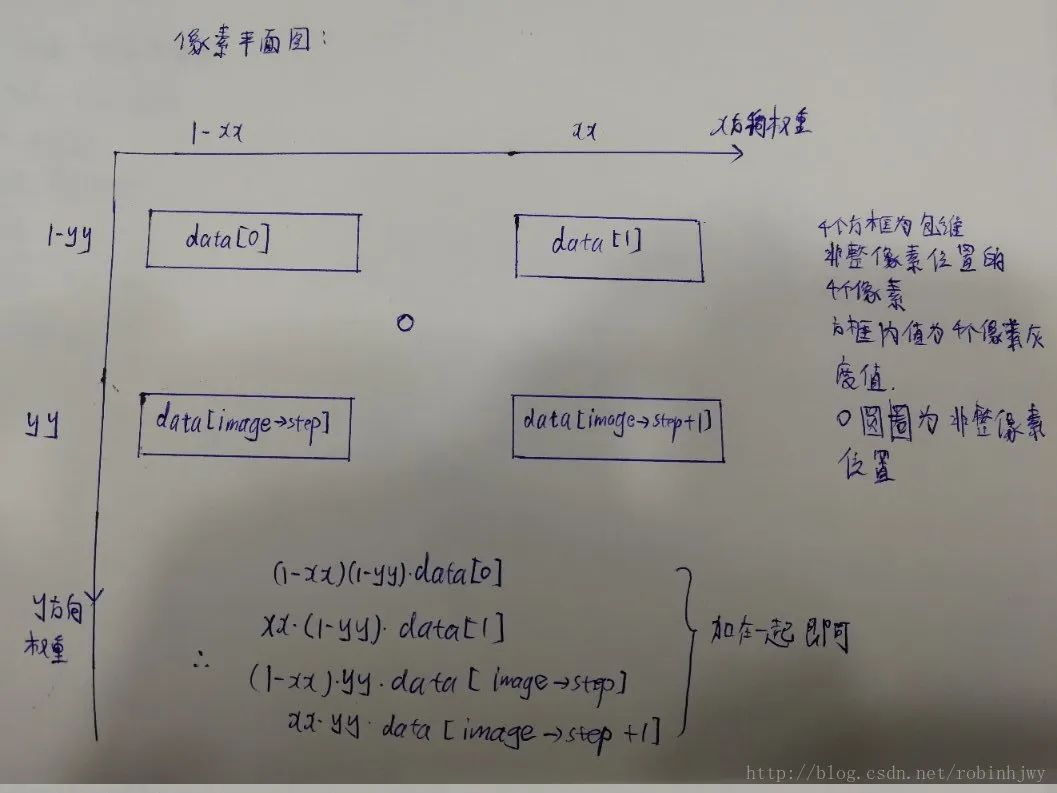 像素平面图:
1-xx
xx
x方向权重
1-yy
data[0]
data[1]
yy
data[image→step]
data[image→step+1]
4个方框为包维
非整像素位置的
4个像素
方框内值为4个像素灰
度值.
O圆圈为非整像素
位置
y方向
权重
∴
(1-xx)(1-yy)·data[0]
xx·(1-yy)·data[1]
(1-xx)·yy·data[image→step]
xx·yy·data[image→step+1]
加在一起即可
http://blog.csdn.net/robinhjwy